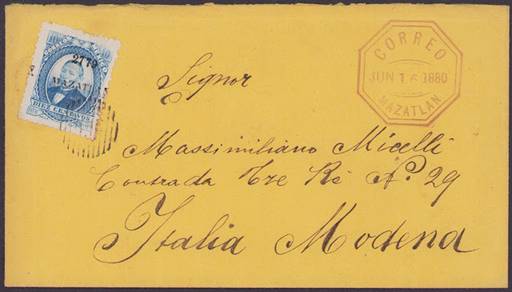 2779
MAZATLAN
DIEZ CENTAVOS
CORREO
JUN 16 1880
MAZATLAN
Signor
Massimiliano Micelli
Contrada Tre Ré Nº. 29
Italia Modena